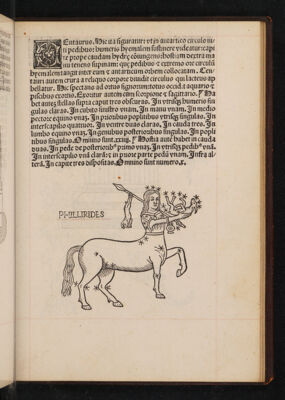 Entaurus. Hic ita figuratur: vt ꝫs antartico circulo ni
ti pedibus: humeris hyemalem sustinere videatur: capi
te prope caudam hydre cōiungens: hostiam dextra ma
nu tenens supinam: que pedibus ⁊ extremo ore circulū
hyemalem tangit inter eum ⁊ antarticum orbem collocatam. Cen
tauri autem crura a reliquo corpore diuidit circulus qui lacteus ap
pellatur. Hic spectans ad ortus signorum: totus occidit aquario ⁊
piscibus exortis. Exoritur autem cum scorpione ⁊ sagittario. Ha
bet autez stellas supra caput tres obscuras. In vtrisqꝫ humeris sin
gulas claras. In cubito sinistro vnam. In manu vnam. In medio
pectore equino vnaꝫ. In prioribus poplitibus vtrisqꝫ singulas. In
interscapilio quattuor. In ventre duas claras. In cauda tres. In
lumbo equino vnaꝫ. In genibus posterioribus singulas. In popli
tibus singulas. Omnino sunt.xxiiij. Hostia autē habet in cauda
duas. In pede de posteriorib⁹ primo vnaꝫ. In vtrisqꝫ pedib⁹ vnā.
In interscapilio vnā clarā: ⁊ in priore parte pedū vnam. Infra al
terā. In capite tres dispositas. Omnino sunt numero.x.
PHILLIRIDES